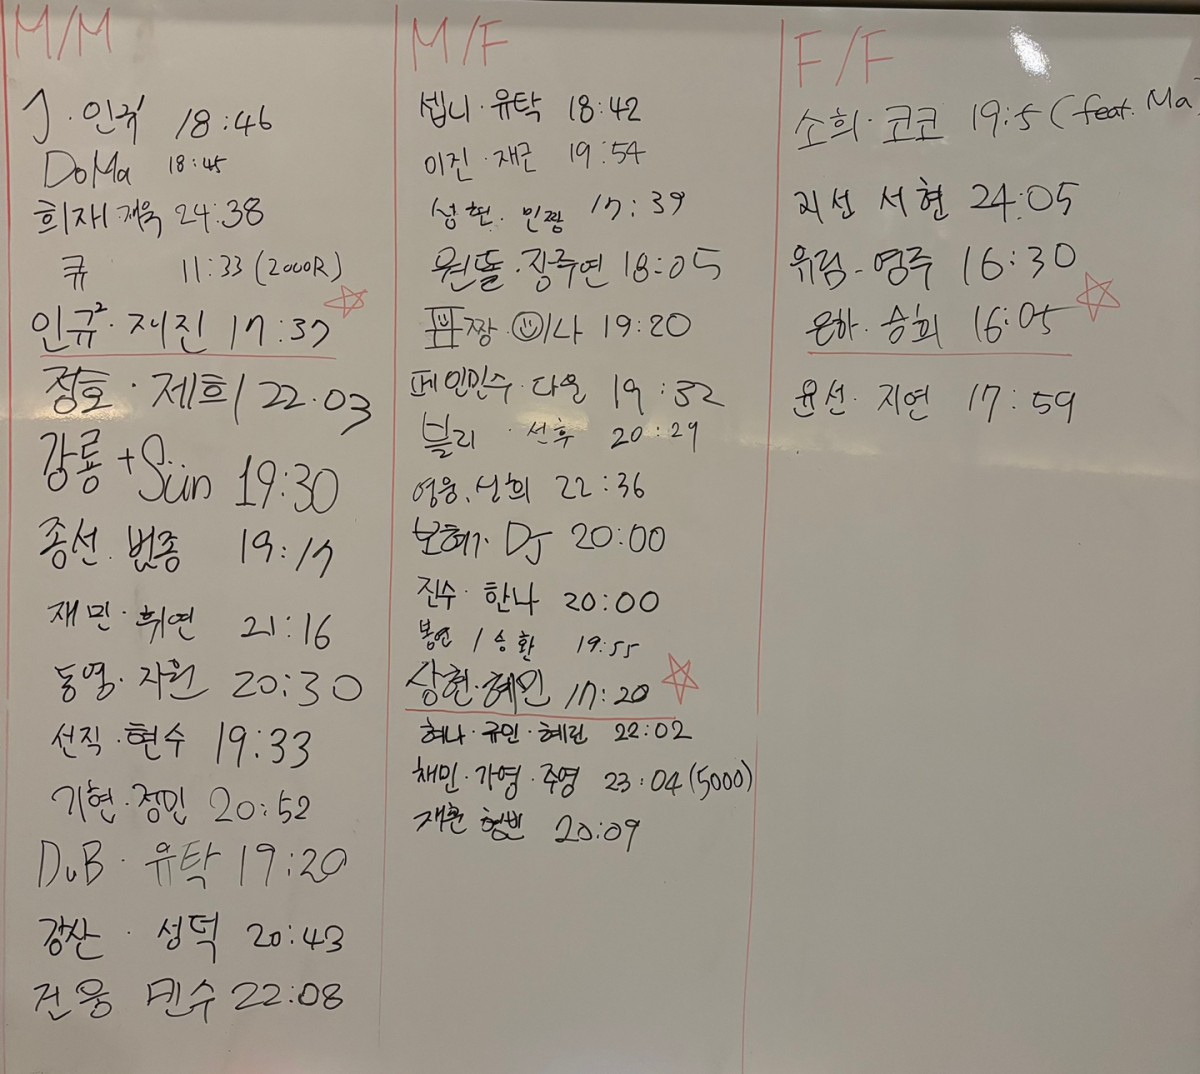 M/M
J · 인규 18:46
DoMa 18:45
희재 · 재욱 24:38
큐 11:33 (2000R)
인규² · 재진 17:37
정호 · 제희 / 22.03
강룡 + Sün 19:30
종선 · 범종 19:17
재민 · 휘연 21:16
동영 · 자원 20:30
선직 · 현수 19:33
기현 · 정민 20:52
DuB · 유탁 19:20
강산 · 성덕 20:43
건웅 민수 22:08
M/F
셉니 · 유탁 18:42
이진 · 재근 19:54
성현 · 민짱 17:39
원돌 · 장주연 18:05
짱 · 나 19:20
페인민수 · 다운 19:32
블리 · 선후 20:29
영웅 · 상희 22:36
보혜가 · DJ 20:00
진수 · 한나 20:00
봉연 / 승환 19:55
상현 · 혜민 17:20
혜나 · 규민 · 혜린 22:02
채민 · 가영 · 주영 23:04 (5000)
재훈 20:09
F/F
소희 · 코코 19:5 (feat. Ma
지선 서현 24:05
유림 - 영주 16:30
은하 · 승희 16:05
윤선 · 지연 17:59